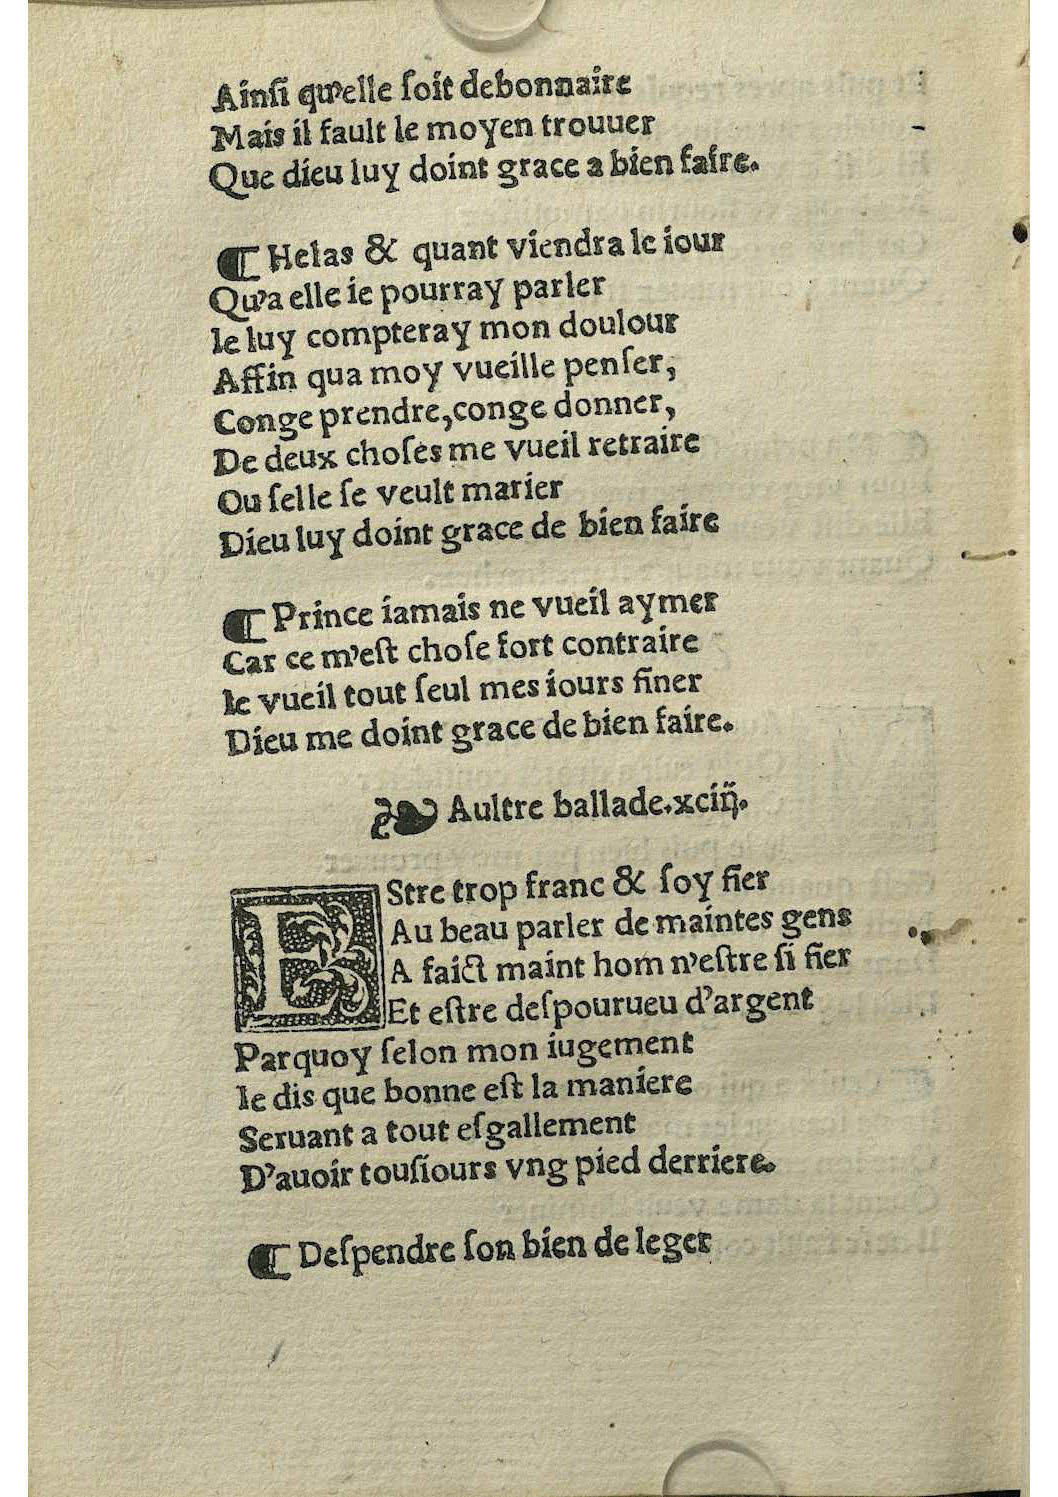 Ainſi qu'elle ſoit debonnaire
Mais il fault le moyen trouuer
Que dieu luy doint grace a bien faire.
¶ Helas & quant viendra le iour
Qu'a elle ie pourray parler
Ie luy compteray mon doulour
Affin qua moy vueille penſer,
Conge prendre,conge donner,
De deux choſes me vueil retraire
Ou ſelle ſe veult marier
Dieu luy doint grace de bien faire
¶ Prince iamais ne vueil aymer
Car ce m'eſt choſe fort contraire
Ie vueil tout ſeul mes iours finer
Dieu me doint grace de bien faire.
❧ Aultre ballade.xciij.
EStre trop franc & ſoy fier
Au beau parler de maintes gens
A faict maint hom n'eſtre ſi fier
Et eſtre deſpourueu d'argent
Parquoy ſelon mon iugement
Ie dis que bonne eſt la maniere
Seruant a tout eſgallement
D'auoir touſiours vng pied derriere.
¶ Deſpendre ſon bien de leger